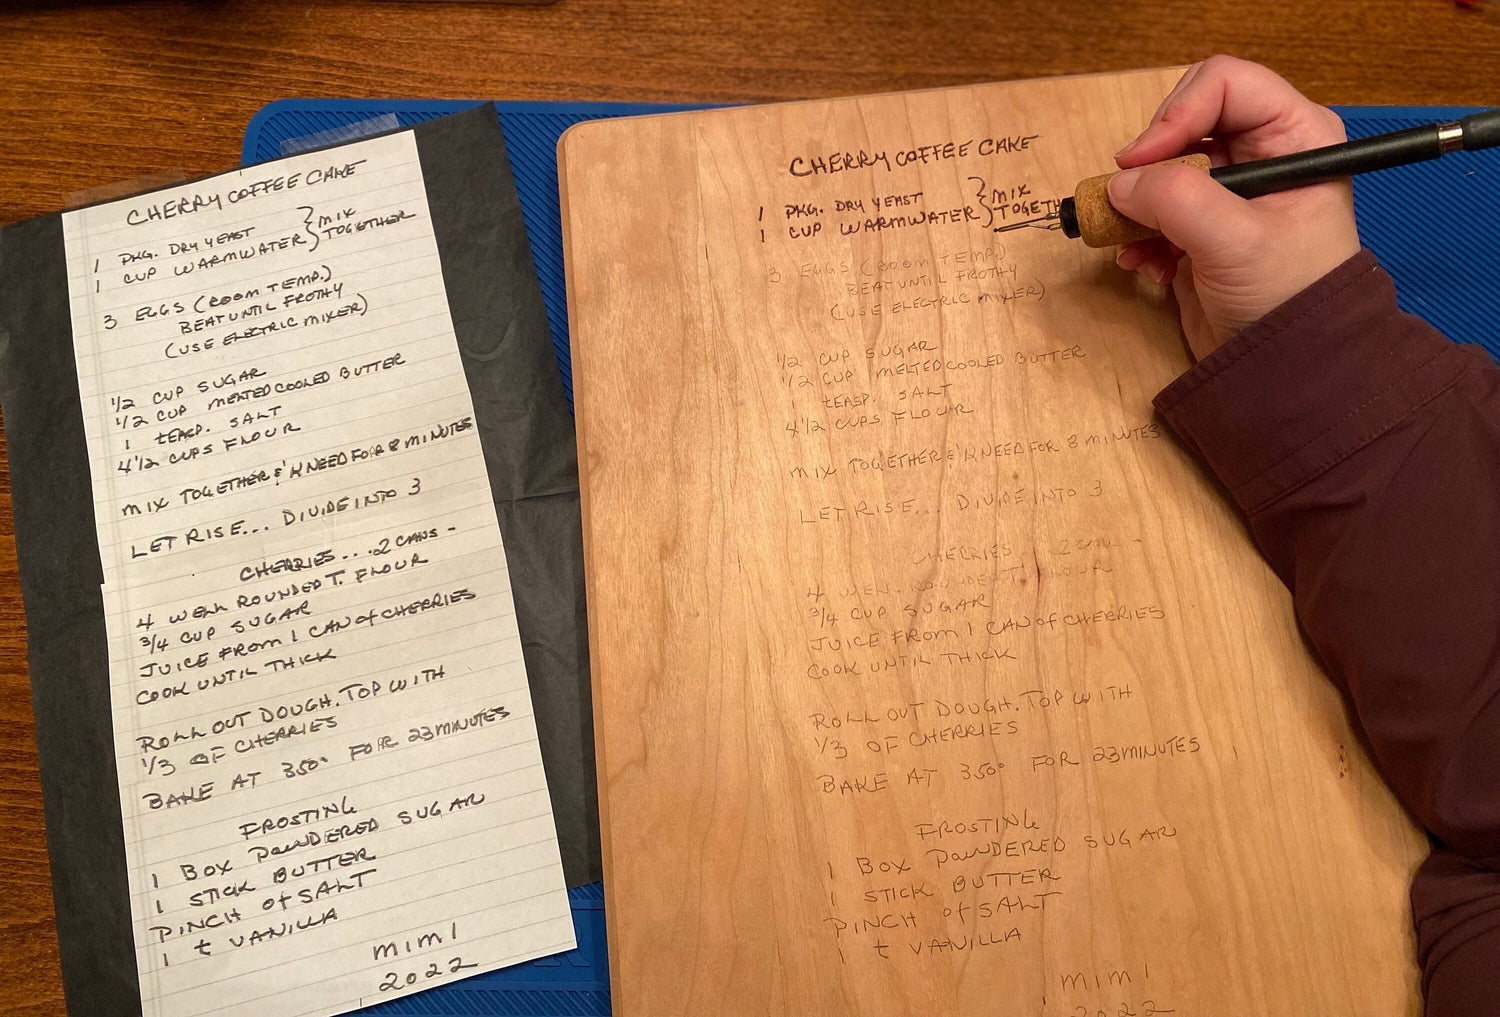 CHERRY COFFEE CAKE
1 PKG. DRY YEAST } MIX
1 CUP WARM WATER } TOGETHER
3 EGGS (ROOM TEMP.)
BEAT UNTIL FROTHY
(USE ELECTRIC MIXER)
1/2 CUP SUGAR
1/2 CUP MELTED COOLED BUTTER
1 tEASP. SALT
4 1/2 CUPS FLOUR
MIX TOGETHER & KNEED FOR 8 MINUTES
LET RISE... DIVIDE INTO 3
CHERRIES... 2 CANS -
4 WELL ROUNDED T. FLOUR
3/4 CUP SUGAR
JUICE FROM 1 CAN of CHERRIES
COOK UNTIL THICK
ROLL OUT DOUGH. TOP WITH
1/3 OF CHERRIES
BAKE AT 350° FOR 23 MINUTES
FROSTING
1 BOX POWDERED SUGAR
1 STICK BUTTER
PINCH of SALT
1 t VANILLA
MIMI
2022
CHERRY COFFEE CAKE
1 PKG. DRY YEAST } MIX
1 CUP WARM WATER } TOGETH
3 EGGS (ROOM TEMP.)
BEAT UNTIL FROTHY
(USE ELECTRIC MIXER)
1/2 CUP SUGAR
1/2 CUP MELTED COOLED BUTTER
1 tEASP. SALT
4 1/2 CUPS FLOUR
MIX TOGETHER & KNEED FOR 8 MINUTES
LET RISE... DIVIDE INTO 3
CHERRIES... 2 CANS -
4 WELL ROUNDED T. FLOUR
3/4 CUP SUGAR
JUICE FROM 1 CAN of CHERRIES
COOK UNTIL THICK
ROLL OUT DOUGH. TOP WITH
1/3 OF CHERRIES
BAKE AT 350° FOR 23 MINUTES
FROSTING
1 BOX POWDERED SUGAR
1 STICK BUTTER
PINCH of SALT
1 t VANILLA
MIMI
2022